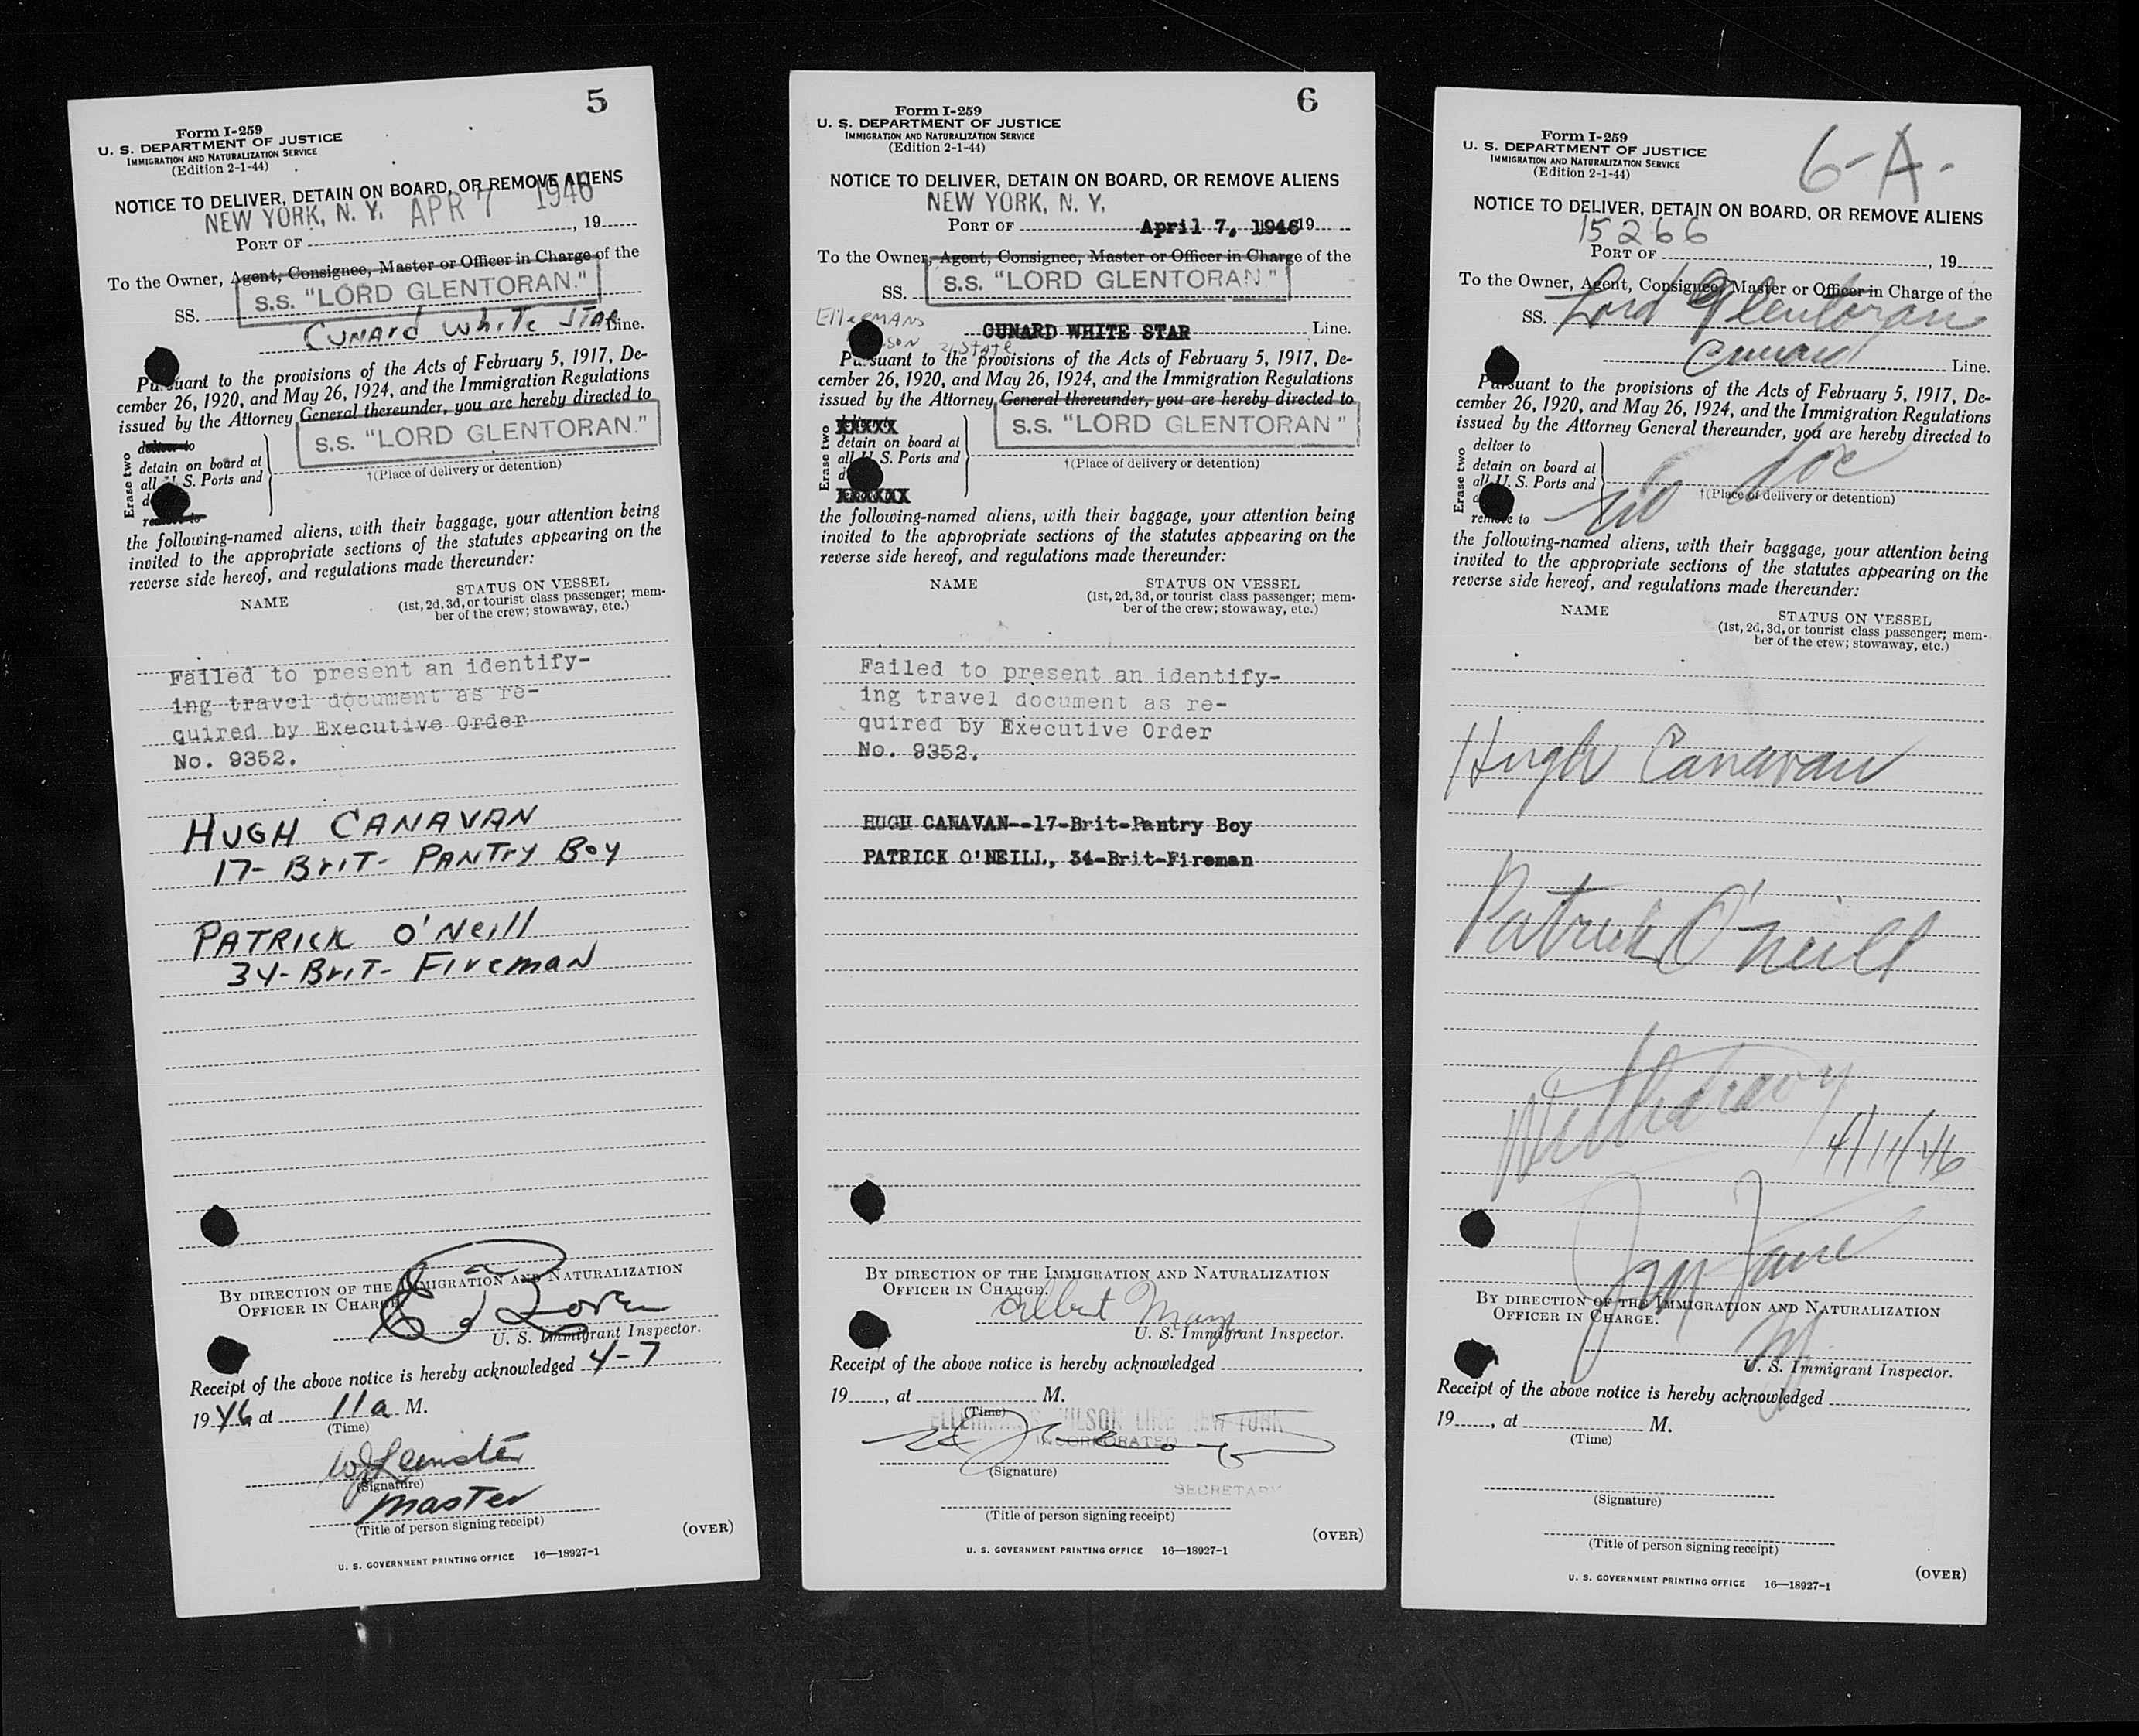 5
Form I-259
U. S. DEPARTMENT OF JUSTICE
IMMIGRATION AND NATURALIZATION SERVICE
(Edition 2-1-44)
NOTICE TO DELIVER, DETAIN ON BOARD, OR REMOVE ALIENS
NEW YORK, N. Y. APR 7 1946
PORT OF , 19
To the Owner, Agent, Consignee, Master or Officer in Charge of the
SS. S.S. "LORD GLENTORAN."
CUNARD WHITE STAR Line.
Pursuant to the provisions of the Acts of February 5, 1917, De-
cember 26, 1920, and May 26, 1924, and the Immigration Regulations
issued by the Attorney General thereunder, you are hereby directed to
Erase two
deliver to
detain on board at
all U. S. Ports and
S.S. "LORD GLENTORAN."
†(Place of delivery or detention)
remove to
the following-named aliens, with their baggage, your attention being
invited to the appropriate sections of the statutes appearing on the
reverse side hereof, and regulations made thereunder:
NAME
STATUS ON VESSEL
(1st, 2d, 3d, or tourist class passenger; mem-
ber of the crew; stowaway, etc.)
Failed to present an identify-
ing travel document as re-
quired by Executive Order
No. 9352.
HUGH CANAVAN
17- BRIT- PANTRY BOY
PATRICK O'NEILL
34- BRIT- FIREMAN
BY DIRECTION OF THE IMMIGRATION AND NATURALIZATION
OFFICER IN CHARGE.
U. S. Immigrant Inspector.
Receipt of the above notice is hereby acknowledged 4-7
1946 at 11a M.
(Time)
(Signature)
Master
(Title of person signing receipt)
(OVER)
U. S. GOVERNMENT PRINTING OFFICE 16—18927-1
6
Form I-259
U. S. DEPARTMENT OF JUSTICE
IMMIGRATION AND NATURALIZATION SERVICE
(Edition 2-1-44)
NOTICE TO DELIVER, DETAIN ON BOARD, OR REMOVE ALIENS
NEW YORK, N. Y.
PORT OF April 7, 1946 19
To the Owner, Agent, Consignee, Master or Officer in Charge of the
SS. S.S. "LORD GLENTORAN"
ELLERMANS
CUNARD WHITE STAR Line.
Pursuant to the provisions of the Acts of February 5, 1917, De-
cember 26, 1920, and May 26, 1924, and the Immigration Regulations
issued by the Attorney General thereunder, you are hereby directed to
Erase two
XXXXX
detain on board at
all U. S. Ports and
S.S. "LORD GLENTORAN"
†(Place of delivery or detention)
XXXXXX
the following-named aliens, with their baggage, your attention being
invited to the appropriate sections of the statutes appearing on the
reverse side hereof, and regulations made thereunder:
NAME
STATUS ON VESSEL
(1st, 2d, 3d, or tourist class passenger; mem-
ber of the crew; stowaway, etc.)
Failed to present an identify-
ing travel document as re-
quired by Executive Order
No. 9352.
HUGH CANAVAN--17-Brit-Pantry Boy
PATRICK O'NEILL, 34-Brit-Fireman
BY DIRECTION OF THE IMMIGRATION AND NATURALIZATION
OFFICER IN CHARGE.
Albert
U. S. Immigrant Inspector.
Receipt of the above notice is hereby acknowledged
19 , at M.
(Time)
WILSON LINE NEW YORK
INCORPORATED
(Signature)
SECRETARY
(Title of person signing receipt)
(OVER)
U. S. GOVERNMENT PRINTING OFFICE 16—18927-1
6-A-
Form I-259
U. S. DEPARTMENT OF JUSTICE
IMMIGRATION AND NATURALIZATION SERVICE
(Edition 2-1-44)
NOTICE TO DELIVER, DETAIN ON BOARD, OR REMOVE ALIENS
15266
PORT OF , 19
To the Owner, Agent, Consignee, Master or Officer in Charge of the
SS. Lord Glentoran
Cunard Line.
Pursuant to the provisions of the Acts of February 5, 1917, De-
cember 26, 1920, and May 26, 1924, and the Immigration Regulations
issued by the Attorney General thereunder, you are hereby directed to
Erase two
deliver to
detain on board at
all U. S. Ports and
†(Place of delivery or detention)
remove to
the following-named aliens, with their baggage, your attention being
invited to the appropriate sections of the statutes appearing on the
reverse side hereof, and regulations made thereunder:
NAME
STATUS ON VESSEL
(1st, 2d, 3d, or tourist class passenger; mem-
ber of the crew; stowaway, etc.)
Hugh Canavan
Patrick O'Neill
4/11/46
BY DIRECTION OF THE IMMIGRATION AND NATURALIZATION
OFFICER IN CHARGE.
U. S. Immigrant Inspector.
Receipt of the above notice is hereby acknowledged
19 , at M.
(Time)
(Signature)
(Title of person signing receipt)
(OVER)
U. S. GOVERNMENT PRINTING OFFICE 16—18927-1